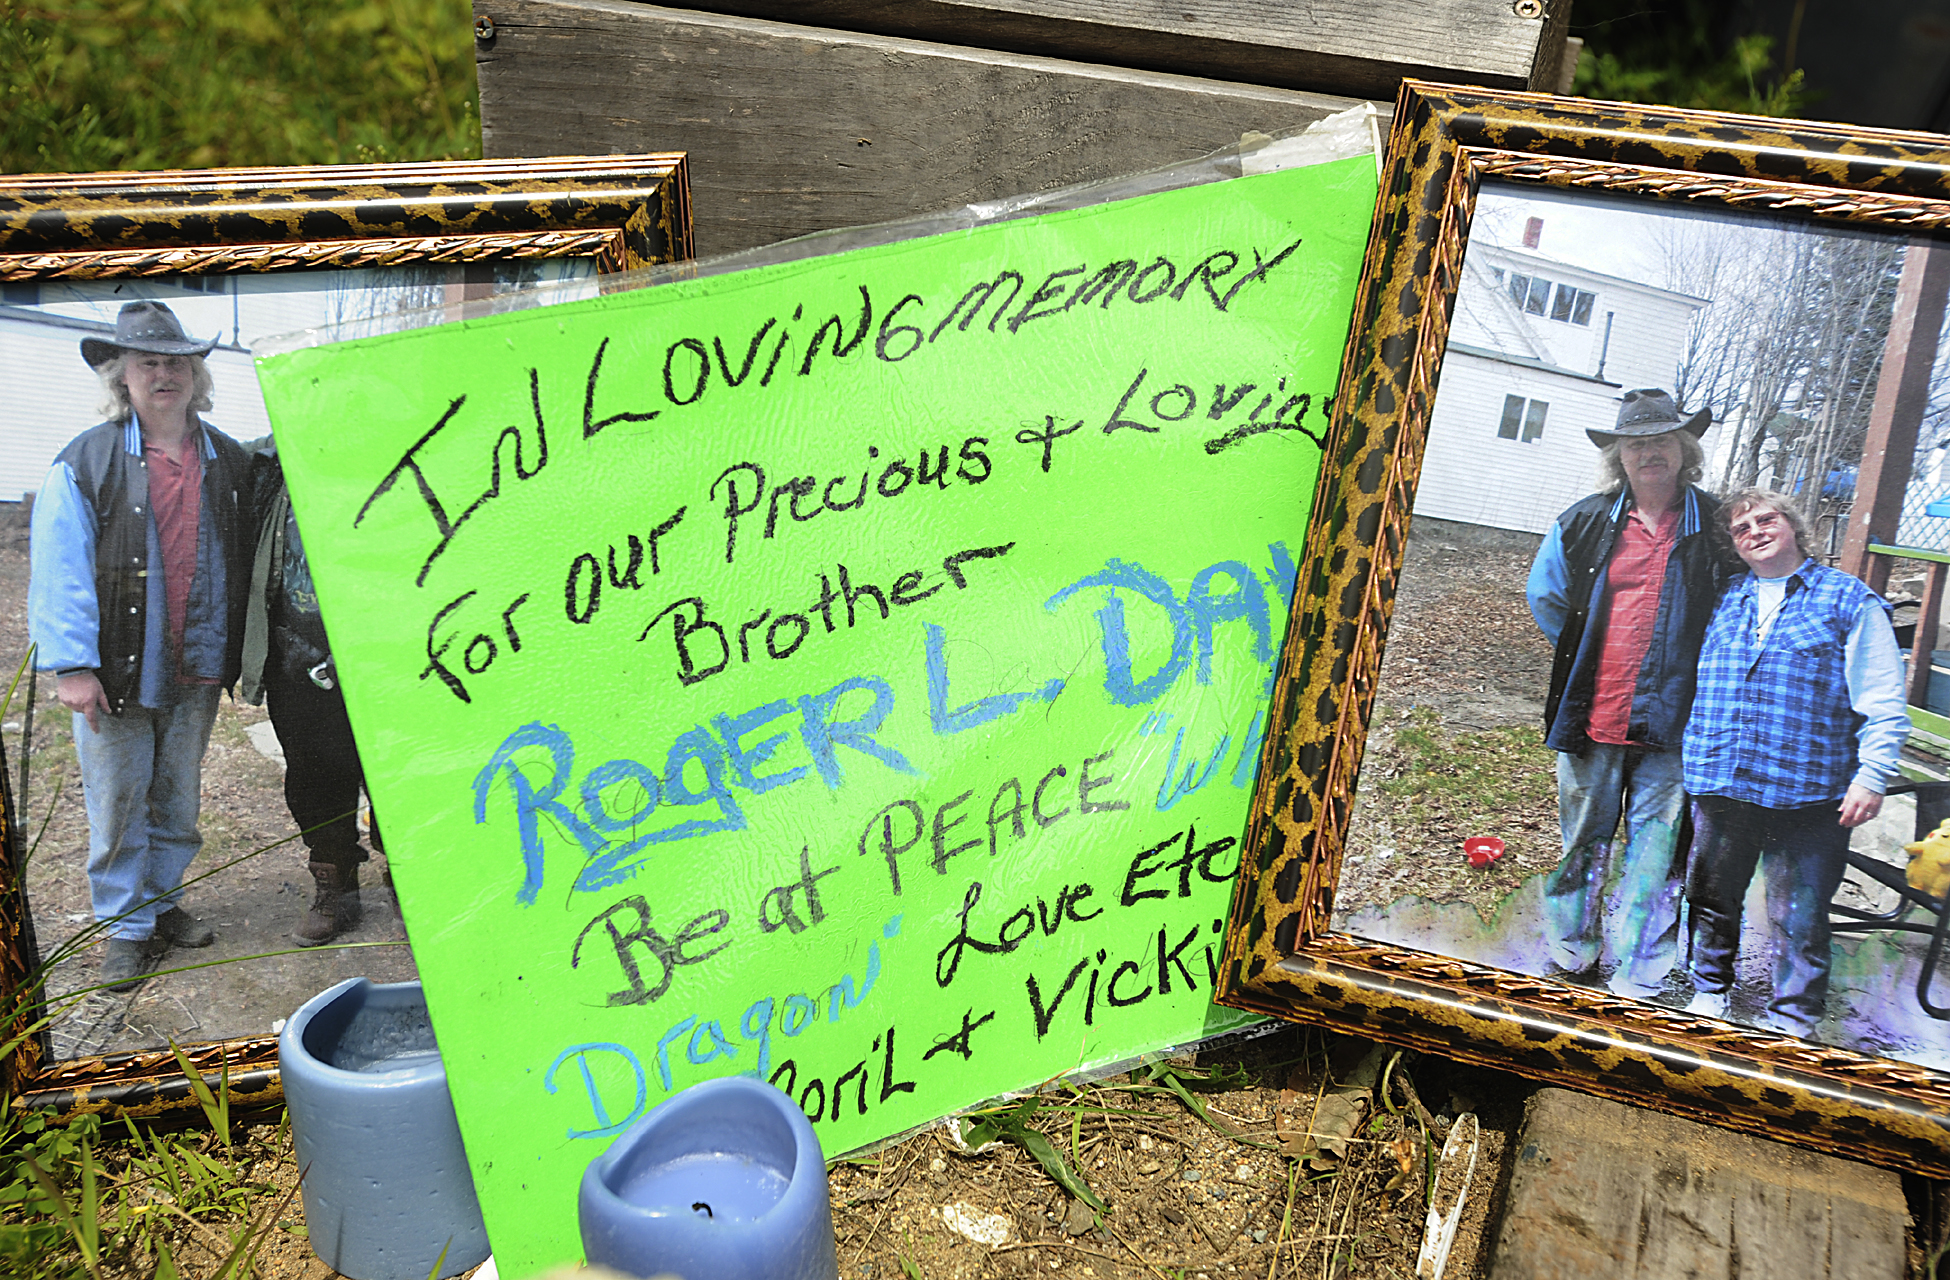 IN LOVING MEMORY
For our Precious & Loving
Brother
ROgER L. DAY
Be at PEACE "Wh
Dragon" Love Ete
April & Vicki